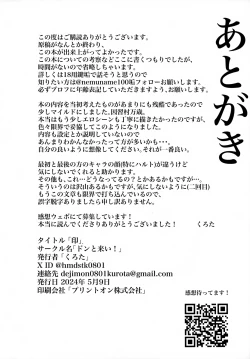 あとがき
この度はご購読ありがとうございます。
原稿がなんとか終わり、
この本が出来上がってよかったです。
この本についての考察などここに書くつもりでしたが、
時間がないので省略しちゃいます。
詳しくは18用鍵垢で話そうと思うので
知りたい方は@nemuname100垢フォローお願いします。
必ずプロフに年齢表記していただきますよう、お願いします。
本の内容を当初考えたものがあまりにも残酷であったので
少しマイルドにしました、因習村万歳。
本当はもう少しエロシーンも丁寧に描きたかったのですが、
色々限界で妥協してこのようになりました。
内容も認定とか説明していないので、
あんまりわかんなかったって方が多いかも・・・
自分の良いように想像してください。それが一番良い。
最初と最後の方のキャラの顔(特にハルト)が違うけど
気にしないでくれると助かります。
その他も、これ…どうなってるの？とかあるかもですが…、
そういうのは沢山あるかもしれませんが、気にしないように(二回目)
もうこの文章も限界で打ち込んでいるので、
誤字脱字ありましたら申し訳ありません。
感想ウェボにて募集しています！
本当に読んでくださりありがとうございました！　くろた
タイトル「印」
サークル名「ドンと来い！」
発行者「くろた」
X ID @hmdstk0801
連絡先 dejimon0801kurota@gmail.com
発行日 2024年 5月9日
印刷会社「プリントオン株式会社」
感想待ってます！